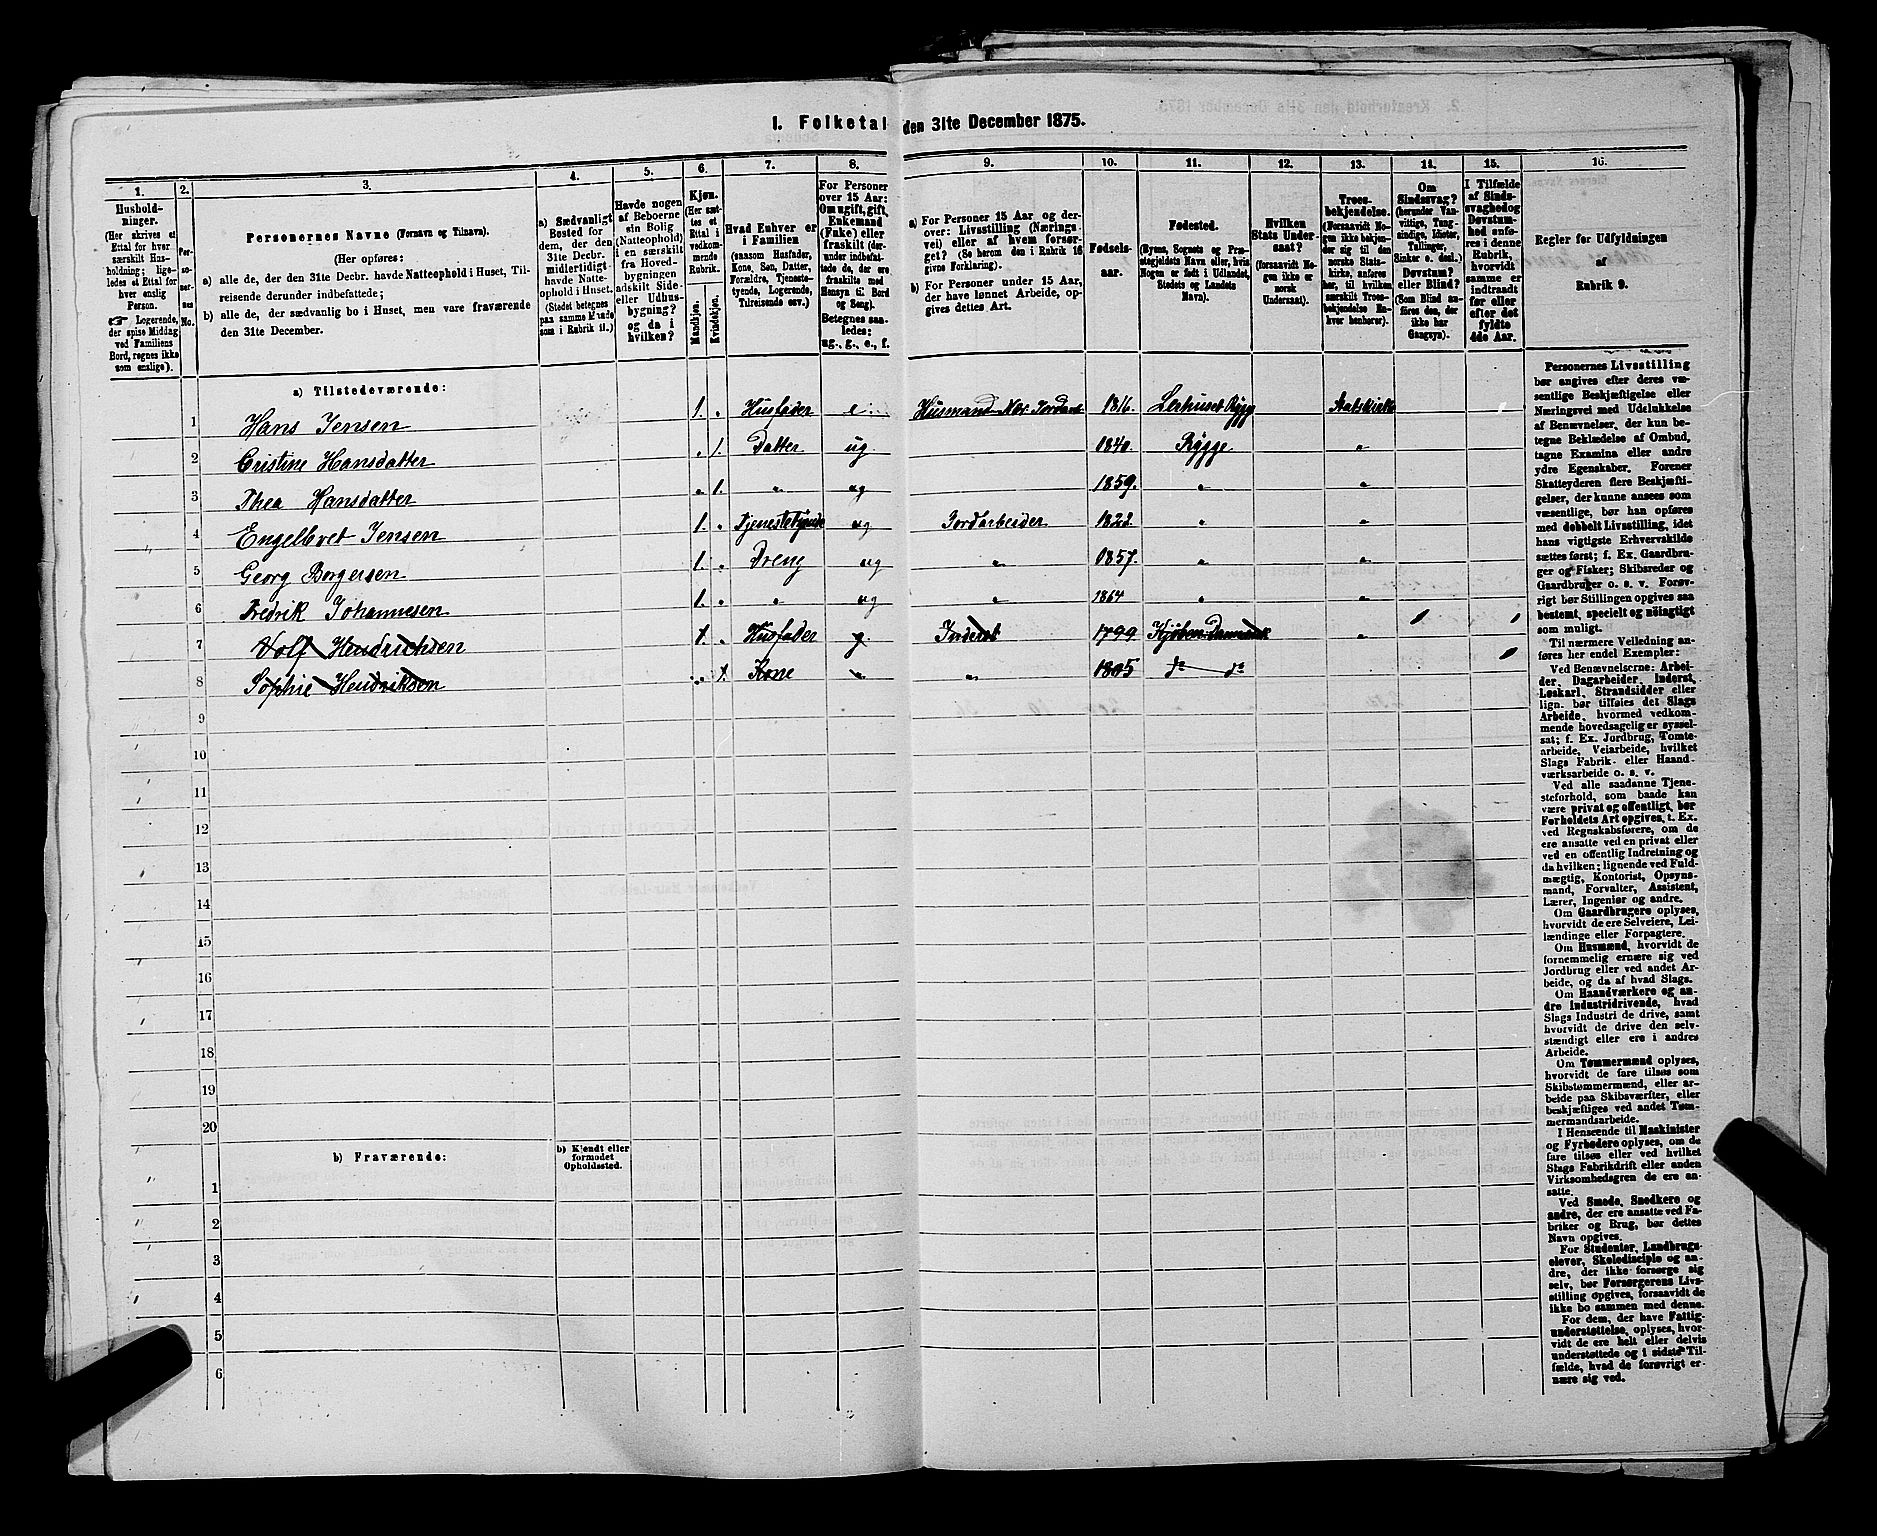 I. Folketal den 31te December 1875.
1. 2. 3. 4. 5. 6. 7. 8. 9. 10. 11. 12. 13. 14. 15. 16.
Hushold-
ninger.
(Her skrives et
Ettal for hver
særskilt Hus-
holdning; lige-
ledes et Ettal for
hver enslig
Person.
☞ Logerende,
der spise Middag
ved Familiens
Bord, regnes ikke
som enslige).
Per-
so-
ner-
nes
No.
Personernes Navne (Fornavn og Tilnavn).
(Her opføres:
a) alle de, der den 31te Decbr. havde Natteophold i Huset, Til-
reisende derunder indbefattede;
b) alle de, der sædvanlig bo i Huset, men vare fraværende
den 31te December.
a) Sædvanligt
Bosted for
dem, der den
31te Decbr.
midlertidigt
havde Natte-
ophold i Huset.
(Stedet betegnes
paa samme Maade
som i Rubrik 11.)
Havde nogen
af Beboerne
sin Bolig
(Natteophold)
i en særskilt
fra Hoved-
bygningen
adskilt Side-
eller Udhus-
bygning?
og da i
hvilken?
Kjøn.
(Her sæt-
tes et
Ettal i
vedkom-
mende
Rubrik.
Mandkjøn.
Kvindekjøn.
Hvad Enhver er
i Familien
(saasom Husfader,
Kone, Søn, Datter,
Forældre, Tjeneste-
tyende, Logerende,
Tilreisende osv.)
For Personer
over 15 Aar:
Om ugift, gift,
Enkemand
(Enke) eller
fraskilt (der-
under indbefat-
tede de, der ere
fraskilte med
Hensyn til Bord
og Seng).
Betegnes saa-
ledes:
ug., g., e., f.
a) For Personer 15 Aar og der-
over: Livsstilling (Nærings-
vei) eller af hvem forsør-
get. (Se herom den i Rubrik 16
givne Forklaring).
b) For Personer under 15 Aar,
der have lønnet Arbeide, op-
gives dettes Art.
Fødsels-
aar.
Fødested.
(Byens, Sognets og Præ-
stegjeldets Navn eller, hvis
Nogen er født i Udlandet,
Stedets og Landets
Navn).
Hvilken
Stats Under-
saat?
(forsaavidt No-
gen ikke er
norsk
Undersaat).
Troes-
bekjendelse.
(Forsaavidt No-
gen ikke bekjen-
der sig til den
norske Stats-
kirke, anføres
her, til hvilken
særskilt Troes-
bekjendelse En-
hver henhører).
Om
Sindssvag?
(herunder Van-
vittige, Tung-
sindige, Idioter,
Tullinger,
Sinker o. desl.)
Døvstum?
eller Blind?
(Som Blind an-
føres den, der
ikke har
Gangsyn).
I Tilfælde
af Sinds-
svaghed og
Døvstum-
hed anfø-
res i denne
Rubrik,
hvorvidt
samme er
indtraadt
før eller
efter det
fyldte
4de Aar.
Regler for Udfyldningen
af
Rubrik 9.
a) Tilstedeværende:
1 Hans Jensen 1. „ Husfader e Husmand 1816. Lerhuset Rygg Statskirke
2 Cristine Hansdatter „ 1. Datter ug. 1840. Rygge „
3 Thea Hansdatter „ 1. „ ug 1859. „ „
4 Engelbret Jensen 1. „ Tjenestetyende ug Jordarbeider „ „
5 Georg Borgersen 1. „ Dreng ug „ 1857. „ „
6 Fredrik Johannesen 1. „ „ ug „ 1864 „ „
7 Hendrichsen 1. „ Husfader g. Inderst 1799 „
8 Sophie Hendriksen „ 1. Kone „ „ 1805 do do
9
10
11
12
13
14
15
16
17
18
19
20
b) Fraværende:
b) Kjendt eller
formodet
Opholdssted.
1
2
3
4
5
6
Personernes Livsstilling
bør angives efter deres væ-
sentlige Beskjæftigelse eller
Næringsvei med Udelukkelse
af Benævnelser, der kun be-
tegne Beklædelse af Ombud,
tagne Examina eller andre
ydre Egenskaber. Forener
Skatteyderen flere Beskjæfti-
gelser, der kunne ansees som
væsentlige, bør han opføres
med dobbelt Livsstilling, idet
hans vigtigste Erhvervskilde
sættes først; f. Ex. Gaardbru-
ger og Fisker; Skibsreder og
Gaardbruger o. s. v. Forøv-
rigt bør Stillingen opgives saa
bestemt, specielt og nøiagtigt
som muligt.
Til nærmere Veiledning an-
føres her endel Exempler:
Ved Benævnelserne: Arbei-
der, Dagarbeider, Inderst,
Løskarl, Strandsidder eller
lign. bør tilføies det Slags
Arbeide, hvormed vedkom-
mende hovedsagelig er syssel-
sat; f. Ex. Jordbrug, Tomte-
arbeide, Veiarbeide, hvilket
Slags Fabrik- eller Haand-
værksarbeide o. s. v.
Ved alle saadanne Tjene-
steforhold, som baade kan
være privat og offentligt, bør
Forholdets Art opgives, t. Ex.
ved Regnskabsførere, om de
ere ansatte ved en privat eller
ved en offentlig Indretning og
da hvilken; lignende ved Fuld-
mægtig, Kontorist, Opsyns-
mand, Forvalter, Assistent,
Lærer, Ingeniør og andre.
Om Gaardbrugere oplyses,
hvorvidt de ere Selveiere, Lei-
lændinge eller Forpagtere.
Om Husmænd, hvorvidt de
fornemmelig ernære sig ved
Jordbrug eller ved andet Ar-
beide, og da af hvad Slags.
Om Haandværkere og an-
dre Industridrivende, hvad
Slags Industri de drive, samt
hvorvidt de drive den selv-
stændigt eller ere i andres
Arbeide.
Om Tømmermænd oplyses,
hvorvidt de fare tilsøs som
Skibstømmermænd, eller ar-
beide paa Skibsværfter, eller
beskjæftiges ved andet Tøm-
mermandsarbeide.
I Henseende til Maskinister
og Fyrbødere oplyses, om de
fare tilsøs eller ved hvilket
Slags Fabrikdrift eller anden
Virksomhedsgren de ere an-
satte.
Ved Smede, Snedkere og
andre, der ere ansatte ved Fa-
briker og Brug, bør dettes
Navn opgives.
For Studenter, Landbrugs-
elever, Skoledisciple og an-
dre, der ikke forsørge sig
selv, bør Forsørgerens Livs-
stilling opgives, forsaavidt de
ikke bo sammen med denne.
For dem, der have Fattig-
understøttelse, oplyses, hvor-
vidt de ere helt eller delvis
understøttede og i sidste Til-
fælde, hvad de forøvrigt er-
nære sig ved.